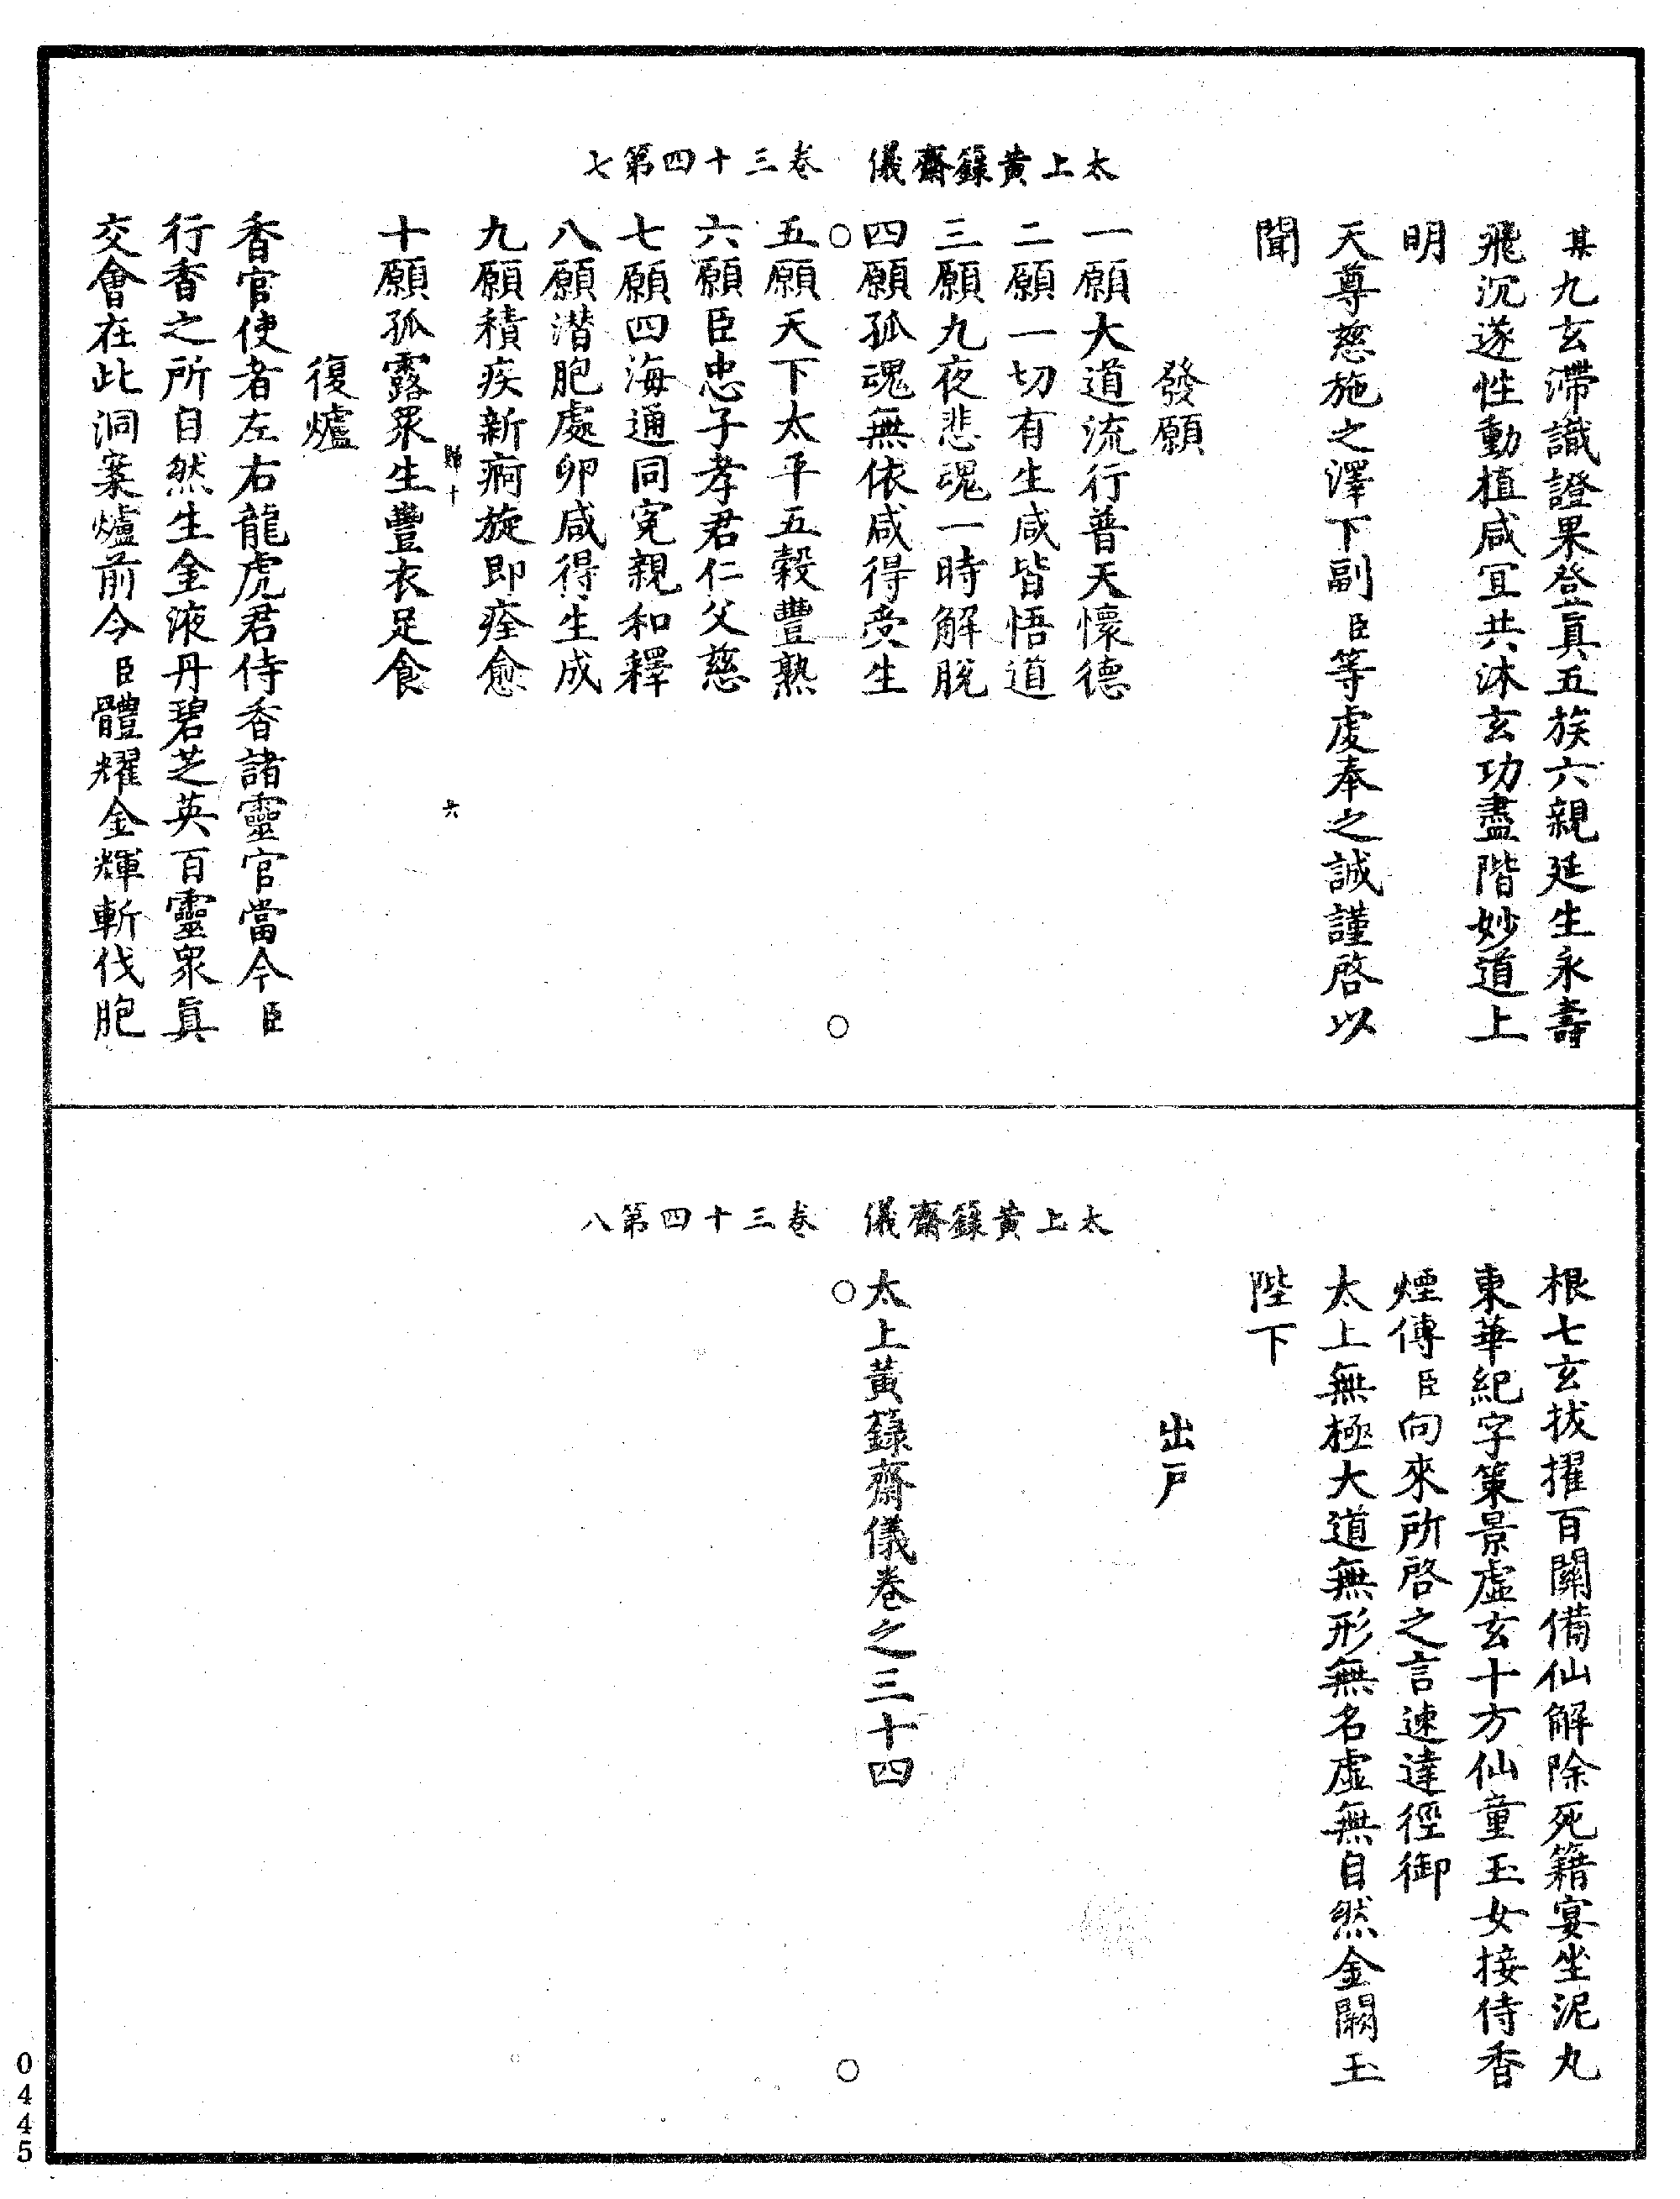 太上黃籙齋儀　卷三十四第七
某九玄滯識證果登眞五族六親延生永壽
飛沉遂性動植咸宜共沐玄功盡階妙道上
明
天尊慈施之澤下副臣等虔奉之誠謹啓以
聞
發願
一願大道流行普天懷德
二願一切有生咸皆悟道
三願九夜悲魂一時解脫
四願孤魂無依咸得受生
五願天下太平五穀豐熟
六願臣忠子孝君仁父慈
七願四海通同寃親和釋
八願潛胞處卵咸得生成
九願積疾新痾旋即痊愈
歸十　六
十願孤露衆生豐衣足食
復爐
香官使者左右龍虎君侍香諸靈官當令臣
行香之所自然生金液丹碧芝英百靈衆眞
交會在此洞案爐前令臣體耀金輝斬伐胞
太上黃籙齋儀　卷三十四第八
根七玄拔擢百關備仙解除死籍宴坐泥丸
東華紀字策景虛玄十方仙童玉女接侍香
煙傳臣向來所啓之言速達徑御
太上無極大道無形無名虛無自然金闕玉
陛下
出戶
太上黃籙齋儀卷之三十四
0445